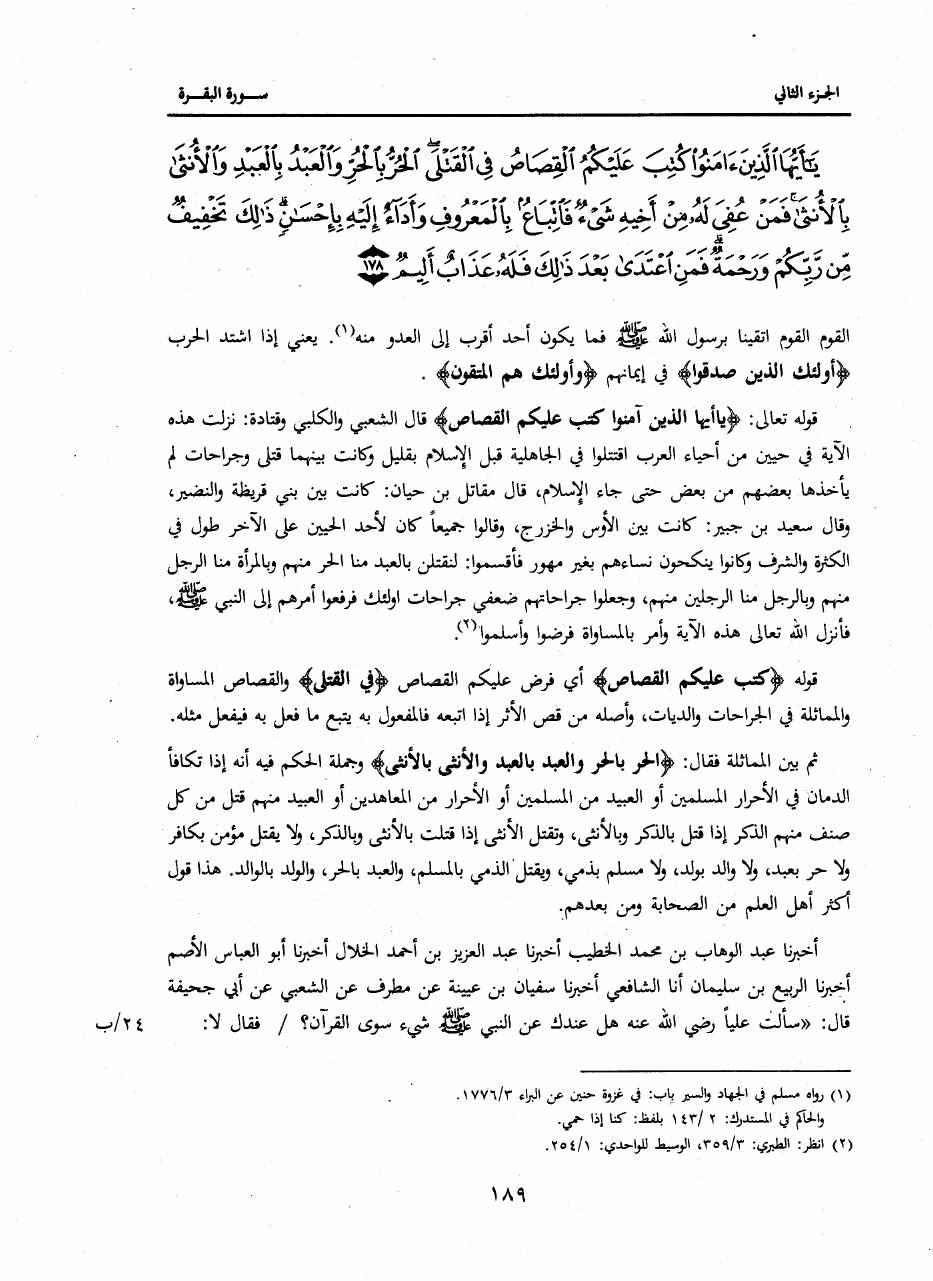 الجزء الثاني
سورة البقرة
يَٰٓأَيُّهَا ٱلَّذِينَ ءَامَنُوا۟ كُتِبَ عَلَيْكُمُ ٱلْقِصَاصُ فِى ٱلْقَتْلَى ۖ ٱلْحُرُّ بِٱلْحُرِّ وَٱلْعَبْدُ بِٱلْعَبْدِ وَٱلْأُنثَىٰ
بِٱلْأُنثَىٰ ۚ فَمَنْ عُفِىَ لَهُۥ مِنْ أَخِيهِ شَىْءٌ فَٱتِّبَاعٌۢ بِٱلْمَعْرُوفِ وَأَدَآءٌ إِلَيْهِ بِإِحْسَٰنٍ ۗ ذَٰلِكَ تَخْفِيفٌ
مِّن رَّبِّكُمْ وَرَحْمَةٌ ۗ فَمَنِ ٱعْتَدَىٰ بَعْدَ ذَٰلِكَ فَلَهُۥ عَذَابٌ أَلِيمٌ ١٧٨
القوم القوم اتقينا برسول الله ﷺ فما يكون أحد أقرب إلى العدو منه(١). يعني إذا اشتد الحرب
﴿أولئك الذين صدقوا﴾ في إيمانهم ﴿وأولئك هم المتقون﴾ .
قوله تعالى: ﴿ياأيها الذين آمنوا كتب عليكم القصاص﴾ قال الشعبي والكلبي وقتادة: نزلت هذه
الآية في حيين من أحياء العرب اقتتلوا في الجاهلية قبل الإسلام بقليل وكانت بينهما قتلى وجراحات لم
يأخذها بعضهم من بعض حتى جاء الإسلام، قال مقاتل بن حيان: كانت بين بني قريظة والنضير،
وقال سعيد بن جبير: كانت بين الأوس والخزرج، وقالوا جميعاً كان لأحد الحيين على الآخر طول في
الكثرة والشرف وكانوا ينكحون نساءهم بغير مهور فأقسموا: لنقتلن بالعبد منا الحر منهم وبالمرأة منا الرجل
منهم وبالرجل منا الرجلين منهم، وجعلوا جراحاتهم ضعفي جراحات اولئك فرفعوا أمرهم إلى النبي ﷺ،
فأنزل الله تعالى هذه الآية وأمر بالمساواة فرضوا وأسلموا(٢).
قوله ﴿كتب عليكم القصاص﴾ أي فرض عليكم القصاص ﴿في القتلى﴾ والقصاص المساواة
والمماثلة في الجراحات والديات، وأصله من قص الأثر إذا اتبعه فالمفعول به يتبع ما فعل به فيفعل مثله.
ثم بين المماثلة فقال: ﴿الحر بالحر والعبد بالعبد والأنثى بالأنثى﴾ وجملة الحكم فيه أنه إذا تكافأ
الدمان في الأحرار المسلمين أو العبيد من المسلمين أو الأحرار من المعاهدين أو العبيد منهم قتل من كل
صنف منهم الذكر إذا قتل بالذكر وبالأنثى، وتقتل الأنثى إذا قتلت بالأنثى وبالذكر، ولا يقتل مؤمن بكافر
ولا حر بعبد، ولا والد بولد، ولا مسلم بذمي، ويقتل الذمي بالمسلم، والعبد بالحر، والولد بالوالد. هذا قول
أكثر أهل العلم من الصحابة ومن بعدهم.
أخبرنا عبد الوهاب بن محمد الخطيب أخبرنا عبد العزيز بن أحمد الخلال أخبرنا أبو العباس الأصم
أخبرنا الربيع بن سليمان أنا الشافعي أخبرنا سفيان بن عيينة عن مطرف عن الشعبي عن أبي جحيفة
قال: «سألت علياً رضي الله عنه هل عندك عن النبي ﷺ شيء سوى القرآن؟ / فقال لا: ٢٤/ب
(١) رواه مسلم في الجهاد والسير باب: في غزوة حنين عن البراء ١٧٧٦/٣.
والحاكم في المستدرك: ٢ /١٤٣ بلفظ: كنا إذا حمي.
(٢) انظر: الطبري: ٣٥٩/٣، الوسيط للواحدي: ٢٥٤/١.
١٨٩